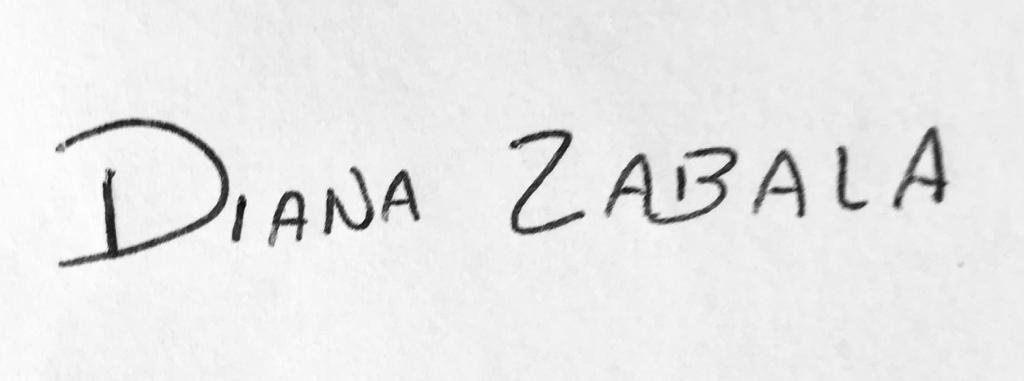 DIANA ZABALA